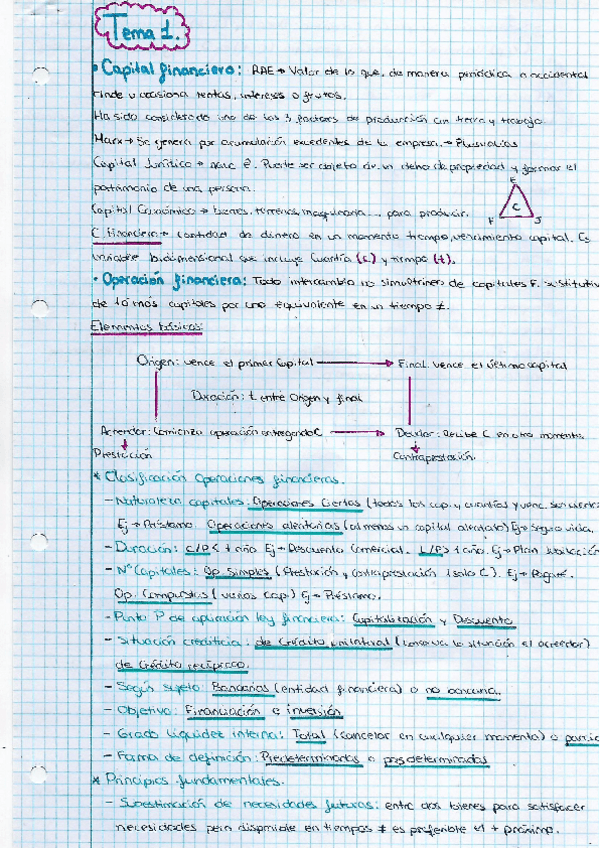 Tema 1.
• Capital financiero: RAE → Valor de lo que, de manera periódica o accidental
rinde u ocasiona rentas, intereses o frutos.
Ha sido considerado uno de los 3 factores de producción con tierra y trabajo
Marx → Se genera por acumulación excedentes de la empresa. → Plusvalías
Capital Jurídico → Puede ser objeto de un dcho de propiedad y formar el
patrimonio de una persona.
E
C
F J
Capital Económico → bienes, terrenos, maquinaria... para producir.
C. Financiero → cantidad de dinero en un momento tiempo, vencimiento capital. Es
variable bidimensional que incluye Cuantía (c) y tiempo (t).
• Operación financiera: Todo intercambio no simultáneo de capitales F. sustitutivo
de 1 o más capitales por uno equivalente en un tiempo ≠.
Elementos básicos:
Origen: vence el primer Capital → Final: vence el último capital
Duración: t entre Origen y final
Acreedor: Comienza operación entregando C → Deudor: Recibe C en otro momento.
Prestación Contraprestación.
* Clasificación Operaciones financieras.
- Naturaleza capitales: Operaciones Ciertas (todos los cap. y cuantías y venc. son ciertos
Ej → Préstamo. Operaciones aleatorias (al menos un capital aleatorio) Ej → Seguro vida.
- Duración: C/P < 1 año Ej → Descuento Comercial. L/P > 1 año. Ej → Plan Jubilación
- Nº Capitales: Op. Simples (Prestación y contraprestación 1 solo C). Ej → Pagaré.
Op. Compuestas (varios Cap.) Ej → Préstamo.
- Punto P de aplicación ley financiera: Capitalización y Descuento
- Situación crediticia: de Crédito unilateral (conserva la situación el acreedor)
de Crédito recíproco.
- Según sujeto: Bancarias (entidad financiera) o no bancaria.
- Objetivo: Financiación e inversión
- Grado Liquidez interna: Total (cancelar en cualquier momento) o parcial
- Forma de definición: Predeterminadas o posdeterminadas
* Principios fundamentales.
- Subestimación de necesidades futuras: entre dos bienes para satisfacer
necesidades pero disponible en tiempos ≠ es preferible el + próximo.